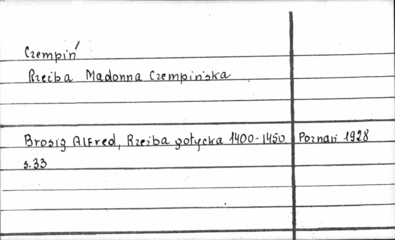 Czempiń
Rzeźba Madonna Czempińska
Brosig Alfred, Rzeźba gotycka 1400-1450 Poznań 1928
s.33